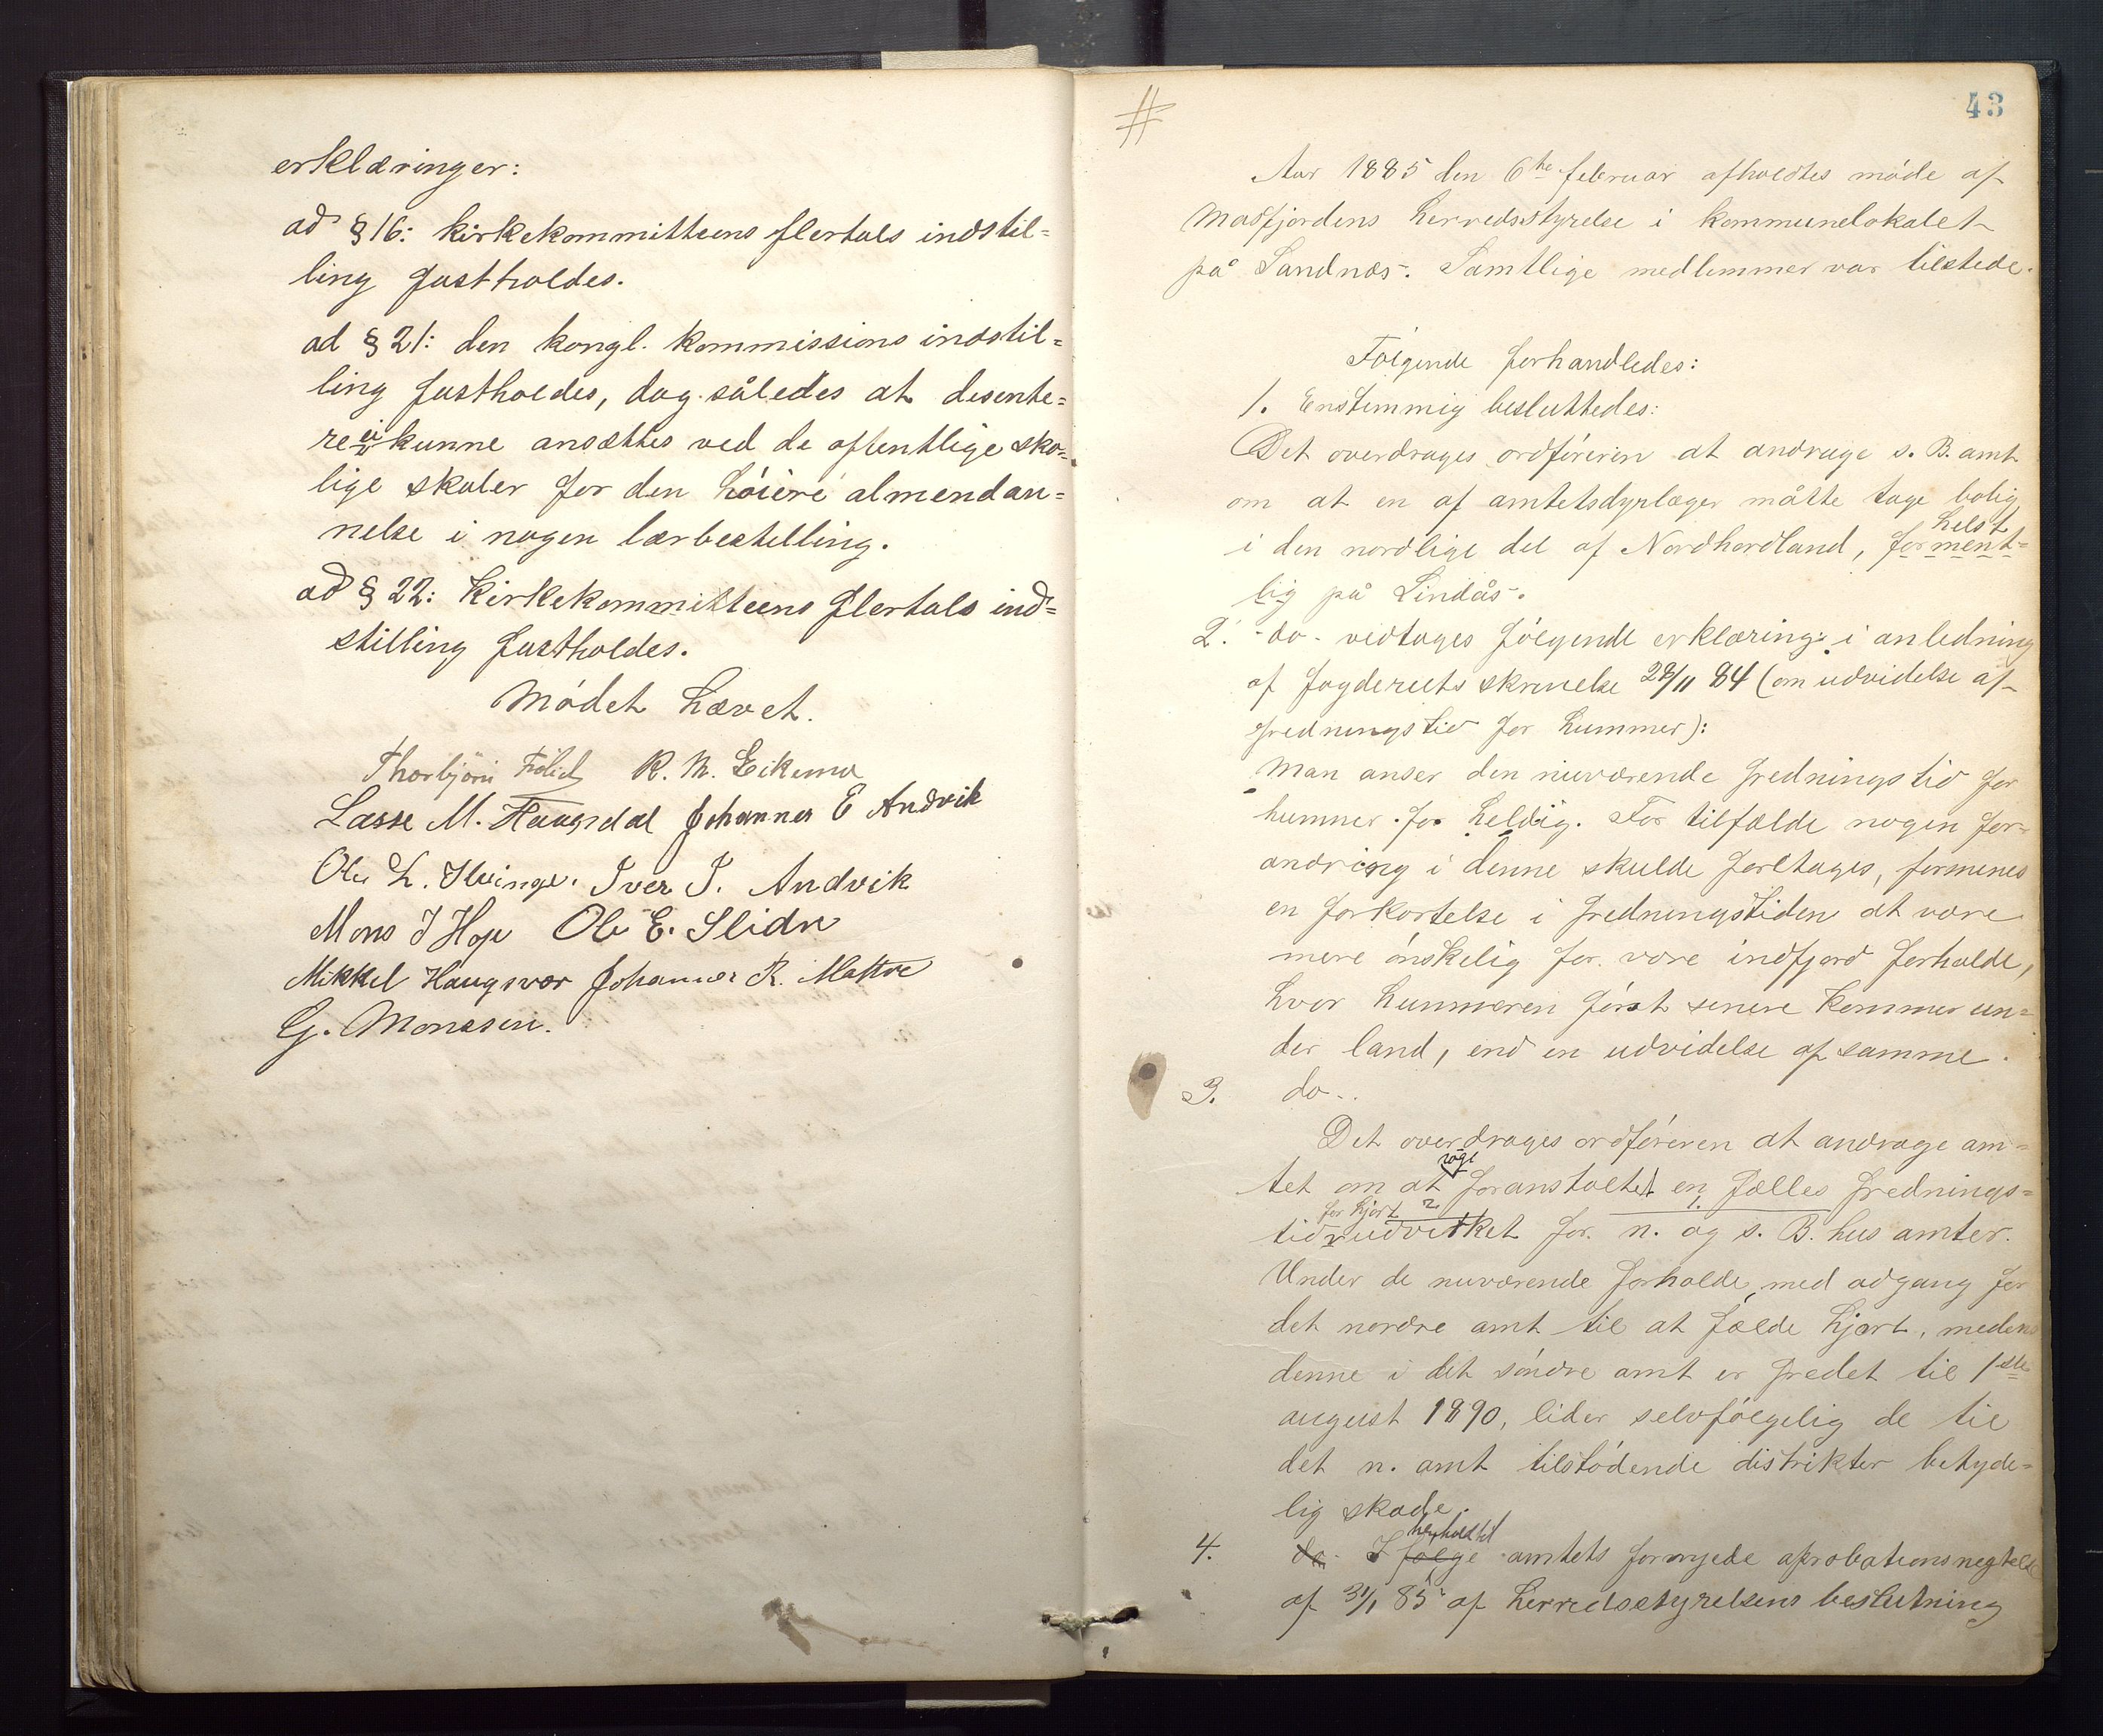 erklæringer:
ad § 16: kirkekommitteens flertals indstil=
ling fastholdes.
ad § 21: den kongl. kommissions indstil=
ling fastholdes, dog således at desente=
re ei kunne ansættes ved de offentlige sko=
lige skoler for den höiere almendan=
nelse i nogen lærbestelling.
ad § 22: Kirkekommitteens flertals ind=
stilling fastholdes.
Mödet hævet.
Thorbjörn Frölid R. M. Eikemo
Lasse M. Haugsdal Johannes E Andvik
Ole L. Kvinge. Iver I. Andvik
Mons J Hope Ole E. Slidre
Mikkel Haugsvær Johannes R. Mattre
G. Monssen.
#
43
Aar 1885 den 6te februar afholdtes möde af
Masfjordens herredsstyrelse i kommunelokalet
på Sandnæs. Samtlige medlemmer var tilstede.
Fölgende forhandledes:
1. Enstemmig besluttedes:
Det overdrages ordföreren at andrage s. B. amt
om at en af amtetsdyrlæger måtte tage bolig
helst
i den nordlige del af Nordhordland, forment=
lig på Lindås.
2. -do- vedtoges fölgende erklæring i anledning
af fogderiets skrivelse 29/11 84 (om udvidelse af
fredningstid for hummer):
Man anser den nuværende fredningstid for
hummer for heldig. For tilfælde nogen for=
andring i denne skulde foretages, formenes
en forkortelse i fredningstiden at være
mere önskelig for vore indfjord forholde,
hvor hummeren först senere kommer un=
der land, end en udvidelse af samme.
3. do..
Det overdrages ordföreren at andrage am=
söge
tet om at foranstaltet en fælles frednings=
for hjort 2 1.
tid udvirket for n. og s. B. hus amter.
Under de nuværende forholde, med adgang for
det nordre amt til at fælde hjort, medens
denne i det söndre amt er fredet til 1ste
august 1890, lider selvfölgelig de til
det n. amt tilstödende distrikter betyde=
lig skade.
henholdtil
4. do. I fölge amtets fornyede aprobationsnegtelse
af 31/1 85 af herredsstyrelsens beslutning